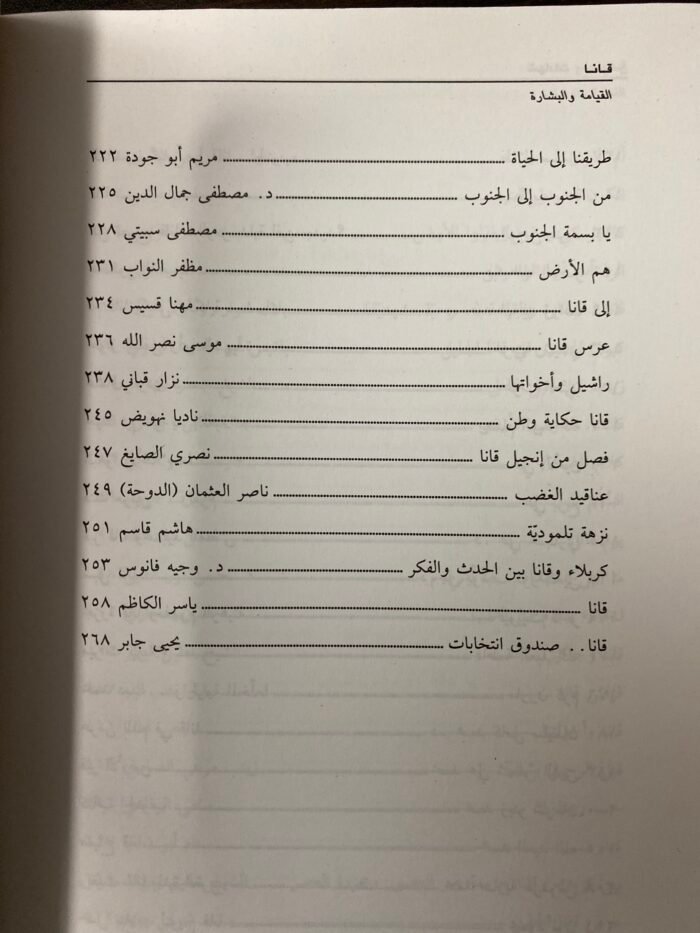 قانا
القيامة والبشارة
طريقنا إلى الحياة ........ مريم أبو جودة ٢٢٢
من الجنوب إلى الجنوب ........ د. مصطفى جمال الدين ٢٢٥
يا بسمة الجنوب ........ مصطفى سبيتي ٢٢٨
هم الأرض ........ مظفر النواب ٢٣١
إلى قانا ........ مهنا قسيس ٢٣٤
عرس قانا ........ موسى نصر الله ٢٣٦
راشيل وأخواتها ........ نزار قباني ٢٣٨
قانا حكاية وطن ........ ناديا نهويض ٢٤٥
فصل من إنجيل قانا ........ نصري الصايغ ٢٤٧
عناقيد الغضب ........ ناصر العثمان (الدوحة) ٢٤٩
نزهة تلموديّة ........ هاشم قاسم ٢٥١
كربلاء وقانا بين الحدث والفكر ........ د. وجيه فانوس ٢٥٣
قانا ........ ياسر الكاظم ٢٥٨
قانا.. صندوق انتخابات ........ يحيى جابر ٢٦٨